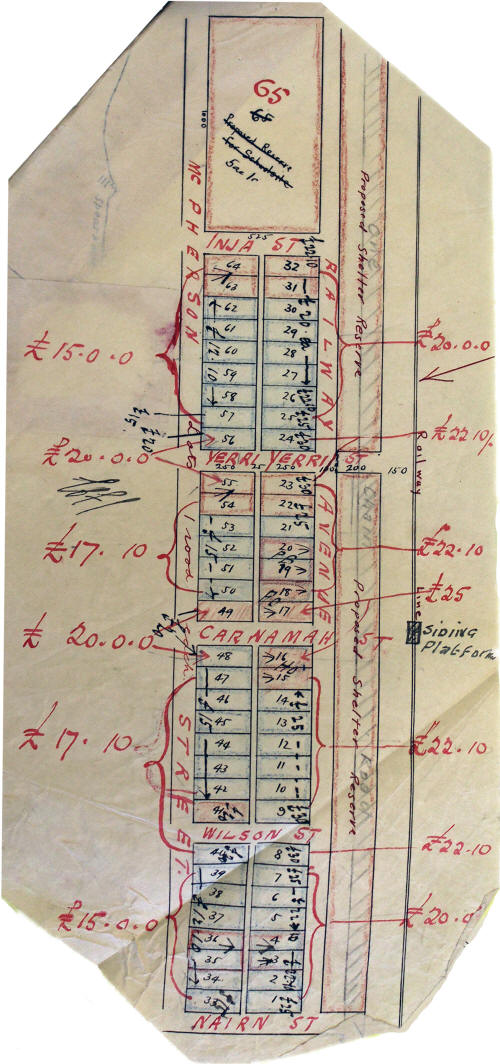 65
Proposed Reserve
5ac 1r
1000
525
INJA ST
McPHERSON
STREET.
RAILWAY
AVENUE
Proposed Shelter Reserve
64 32
63 31
62 30
61 29
60 28
59 27
58 26
57 25
56 24
£15.0.0
£20.0.0
£22.10/-
£15
£20
£20.0.0
YERRI YERRI ST
250 25 250 100 200 150
55 23
54 22
53 21
52 20
51 19
50 18
49 17
1 rood
£17.10
£22.10
£25
Railway
Line
CARNAMAH ST
SIDING
Platform
£20.0.0
48 16
47 15
46 14
45 13
44 12
43 11
42 10
41 9
£17.10
£22.10
Proposed Shelter Reserve
Road
WILSON ST
40 8
39 7
38 6
37 5
36 4
35 3
34 2
33 1
£22.10
£15.0.0
£20.0
NAIRN ST